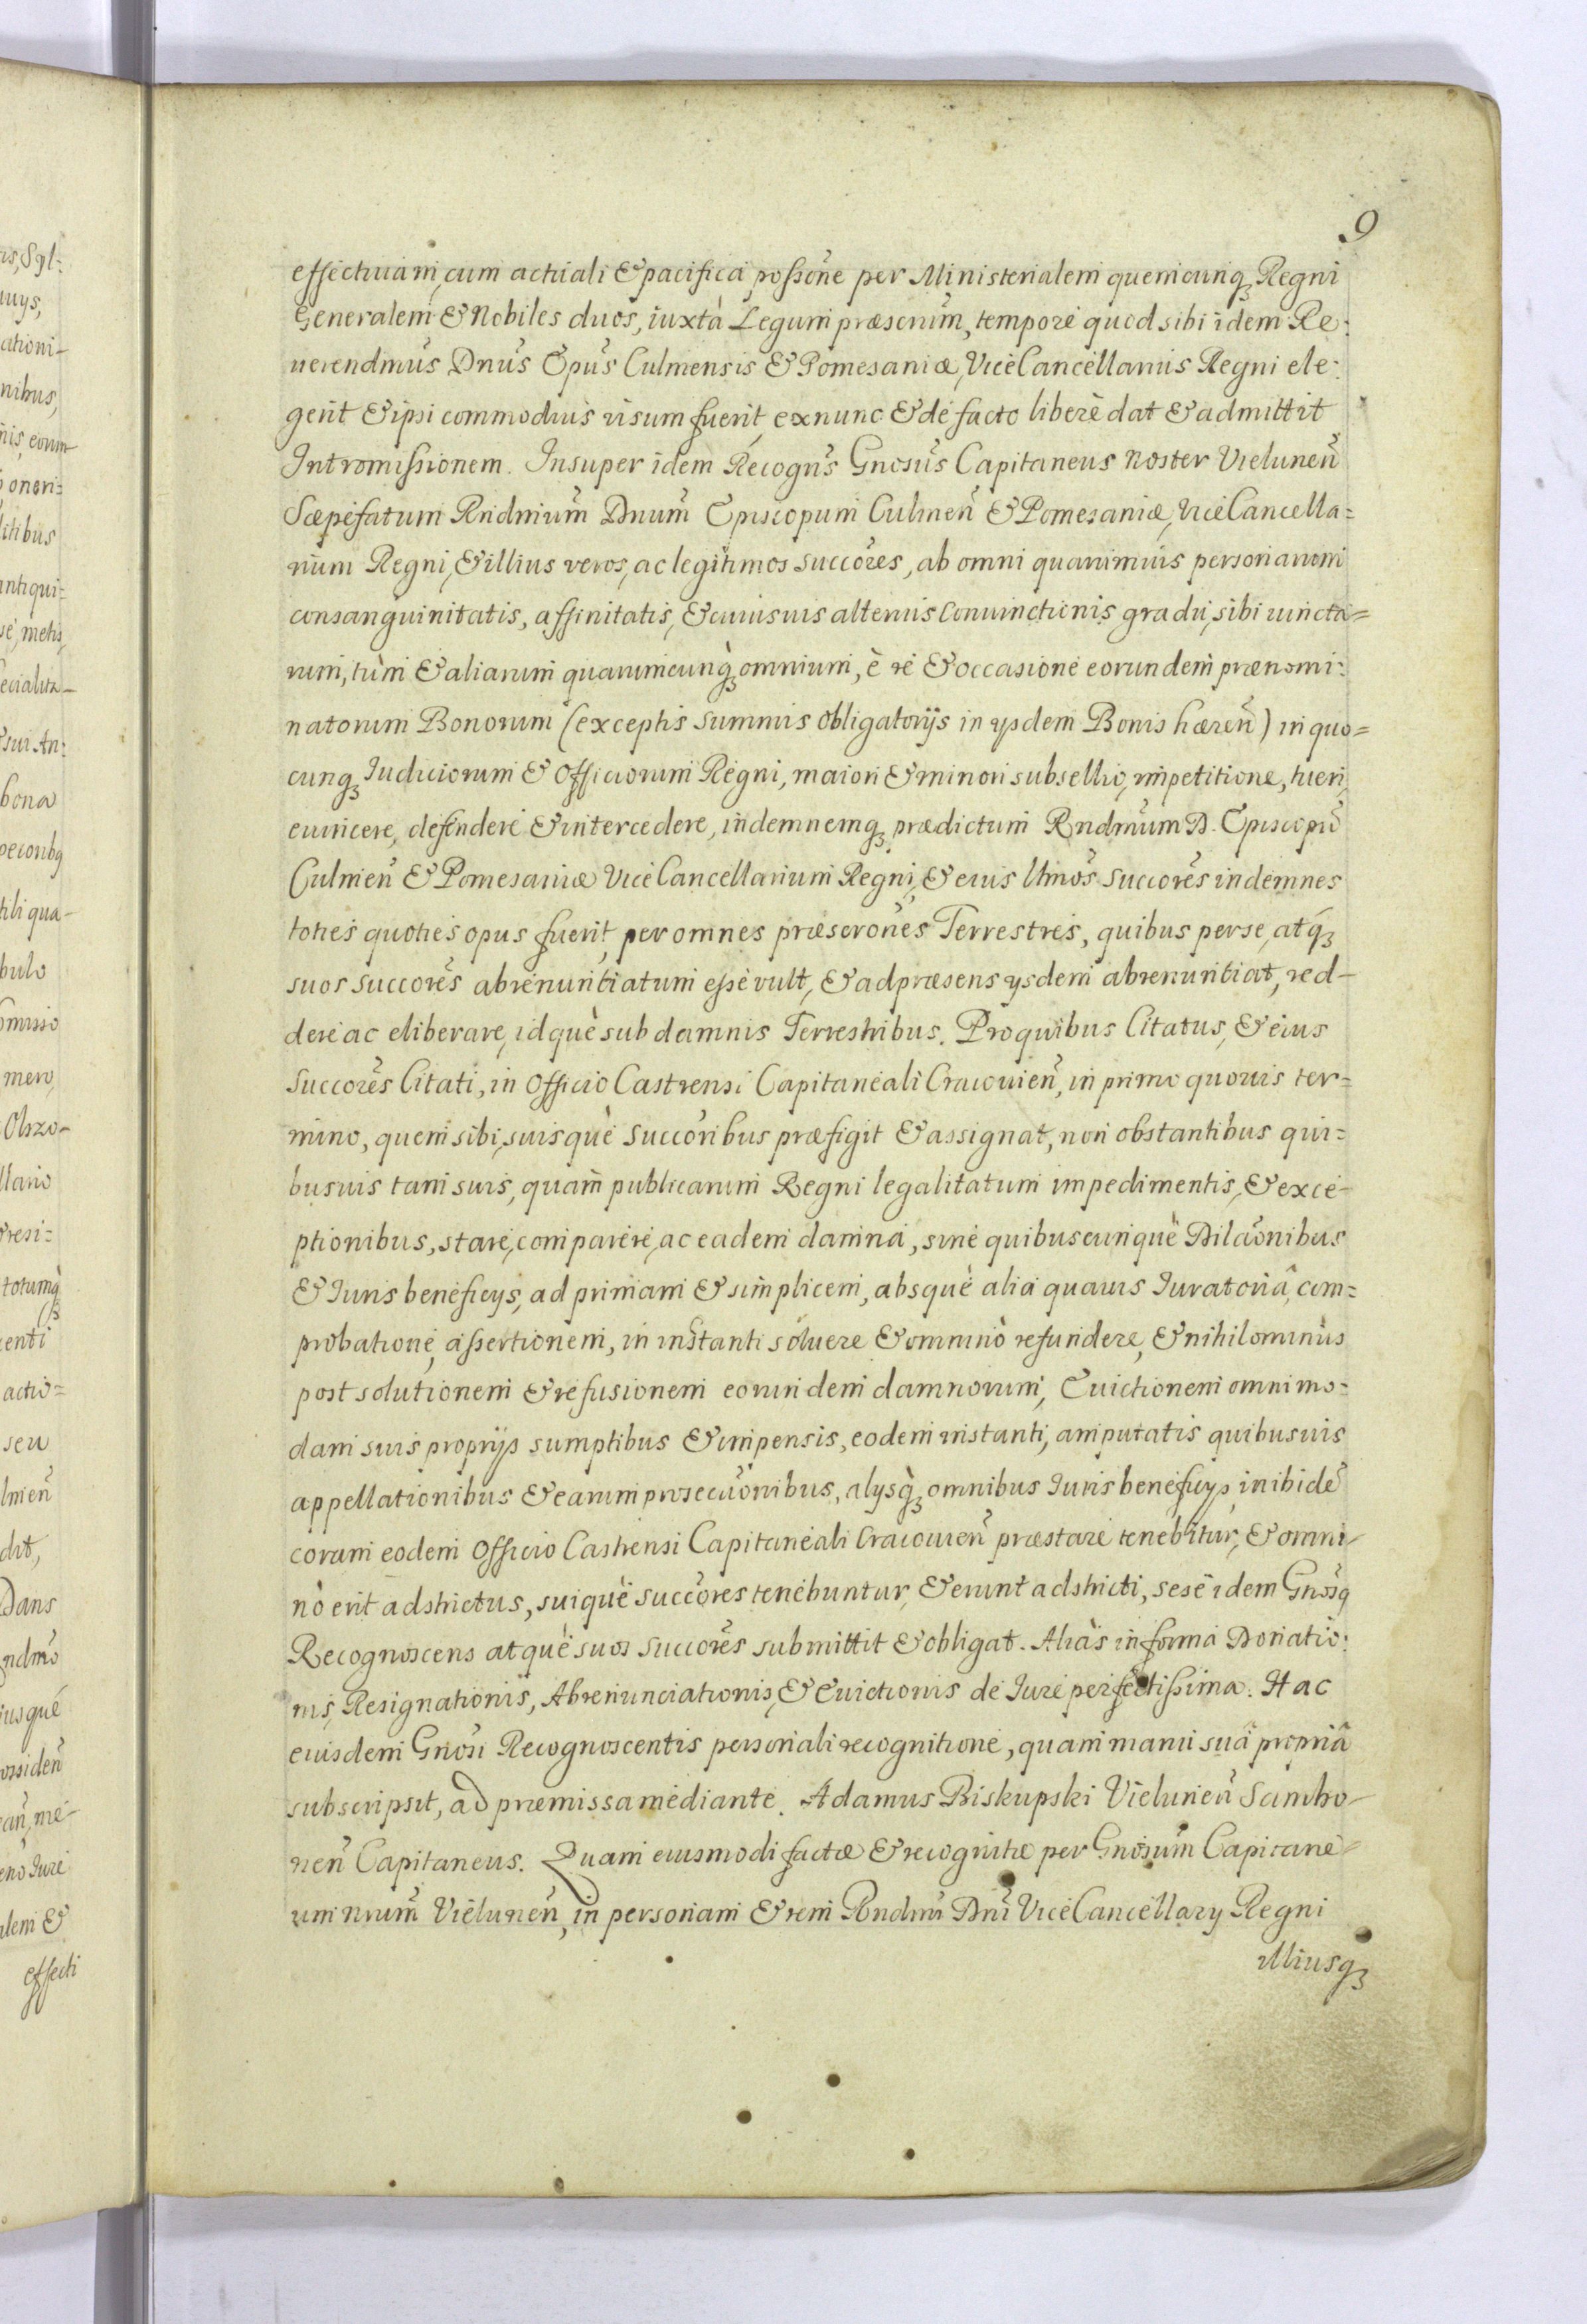 9
effectiuam, cum actuali & pacifica possone per Ministerialem quemcunq Regni
Generalem & Nobiles duos, iuxtà Legum præscrum, tempore quod sibi idem Re:
uerendmus Dnus Epus Culmensis & Pomesaniæ, ViceCancellarius Regni ele:
gerit & ipsi commodius visum fuerit, ex nunc & de facto liberè dat & admittit
Intromissionem. Insuper idem Recogns Gnosus Capitaneus noster Vielunen
Sæpefatum Rndmum Dnum Episcopum Culmen & Pomesaniæ, ViceCancella=
rium Regni, & illius veros, ac legitimos succores, ab omni quarumuis personarum
consanguinitatis, affinitatis, & cuiusuis alterius conuinctionis gradu, sibi iuncta=
rum, tùm & aliarum quarumcunq omnium, è re & occasione eorundem prænomi:
natorum Bonorum (exceptis summis obligatorijs in ysdem Bonis hæren) in quo=
cunq Iudiciorum & Officiorum Regni, maiori & minori subsellio, impetitione, tueri,
euincere, defendere & intercedere, indemnemq prædictum Rndmum D. Episcopu
Culmen & Pomesaniæ ViceCancellarium Regni, & eius ltmos succores indemnes
toties quoties opus fuerit, per omnes præscrones Terrestres, quibus per se, atq
suos succores abrenuntiatum esse vult, & ad præsens ysdem abrenuntiat, red-
dere ac eliberare, idquè sub damnis Terrestribus. Pro quibus Citatus, & eius
succores Citati, in Officio Castrensi Capitaneali Cracouien, in primo quouis ter=
mino, quem sibi, suisquè succoribus præfigit & assignat, non obstantibus qui=
busuis tam suis, quàm publicarum Regni legalitatum impedimentis, & exce-
ptionibus, stare, comparere, ac eadem damna, sine quibuscunquè Dilaonibus
& Iuris beneficys, ad primam & simplicem, absquè alia quauis Iuratoriâ com=
probatione, assertionem, in instanti soluere & omninò refundere, & nihilominùs
post solutionem & refusionem eorundem damnorum, Euictionem omnimo=
dam suis proprijs sumptibus & impensis, eodem instanti, amputatis quibusuis
appellationibus & earum prosecuonibus, alysq omnibus Iuris beneficys, inibide
coram eodem Officio Castrensi Capitaneali Cracouien præstare tenebitur, & omni-
nò erit adstrictus, suiquè succores tenebuntur, & erunt adstricti, sese idem Gnosq
Recognoscens atquè suos succores submittit & obligat. Aliàs in forma Donatio:
nis, Resignationis, Abrenunciationis, & Euictionis de Iure perfectissima. Hac
eiusdem Gnosi Recognoscentis personali recognitione, quam manu suâ propriâ
subscripsit, ad præmissa mediante. Adamus Biskupski Vielunen Scimbo-
nen Capitaneus. Quam eiusmodi factæ & recognitæ per Gnosum Capitane-
um nrum Vielunen, in personam & rem Rndmi Dni ViceCancellary Regni
illiusq